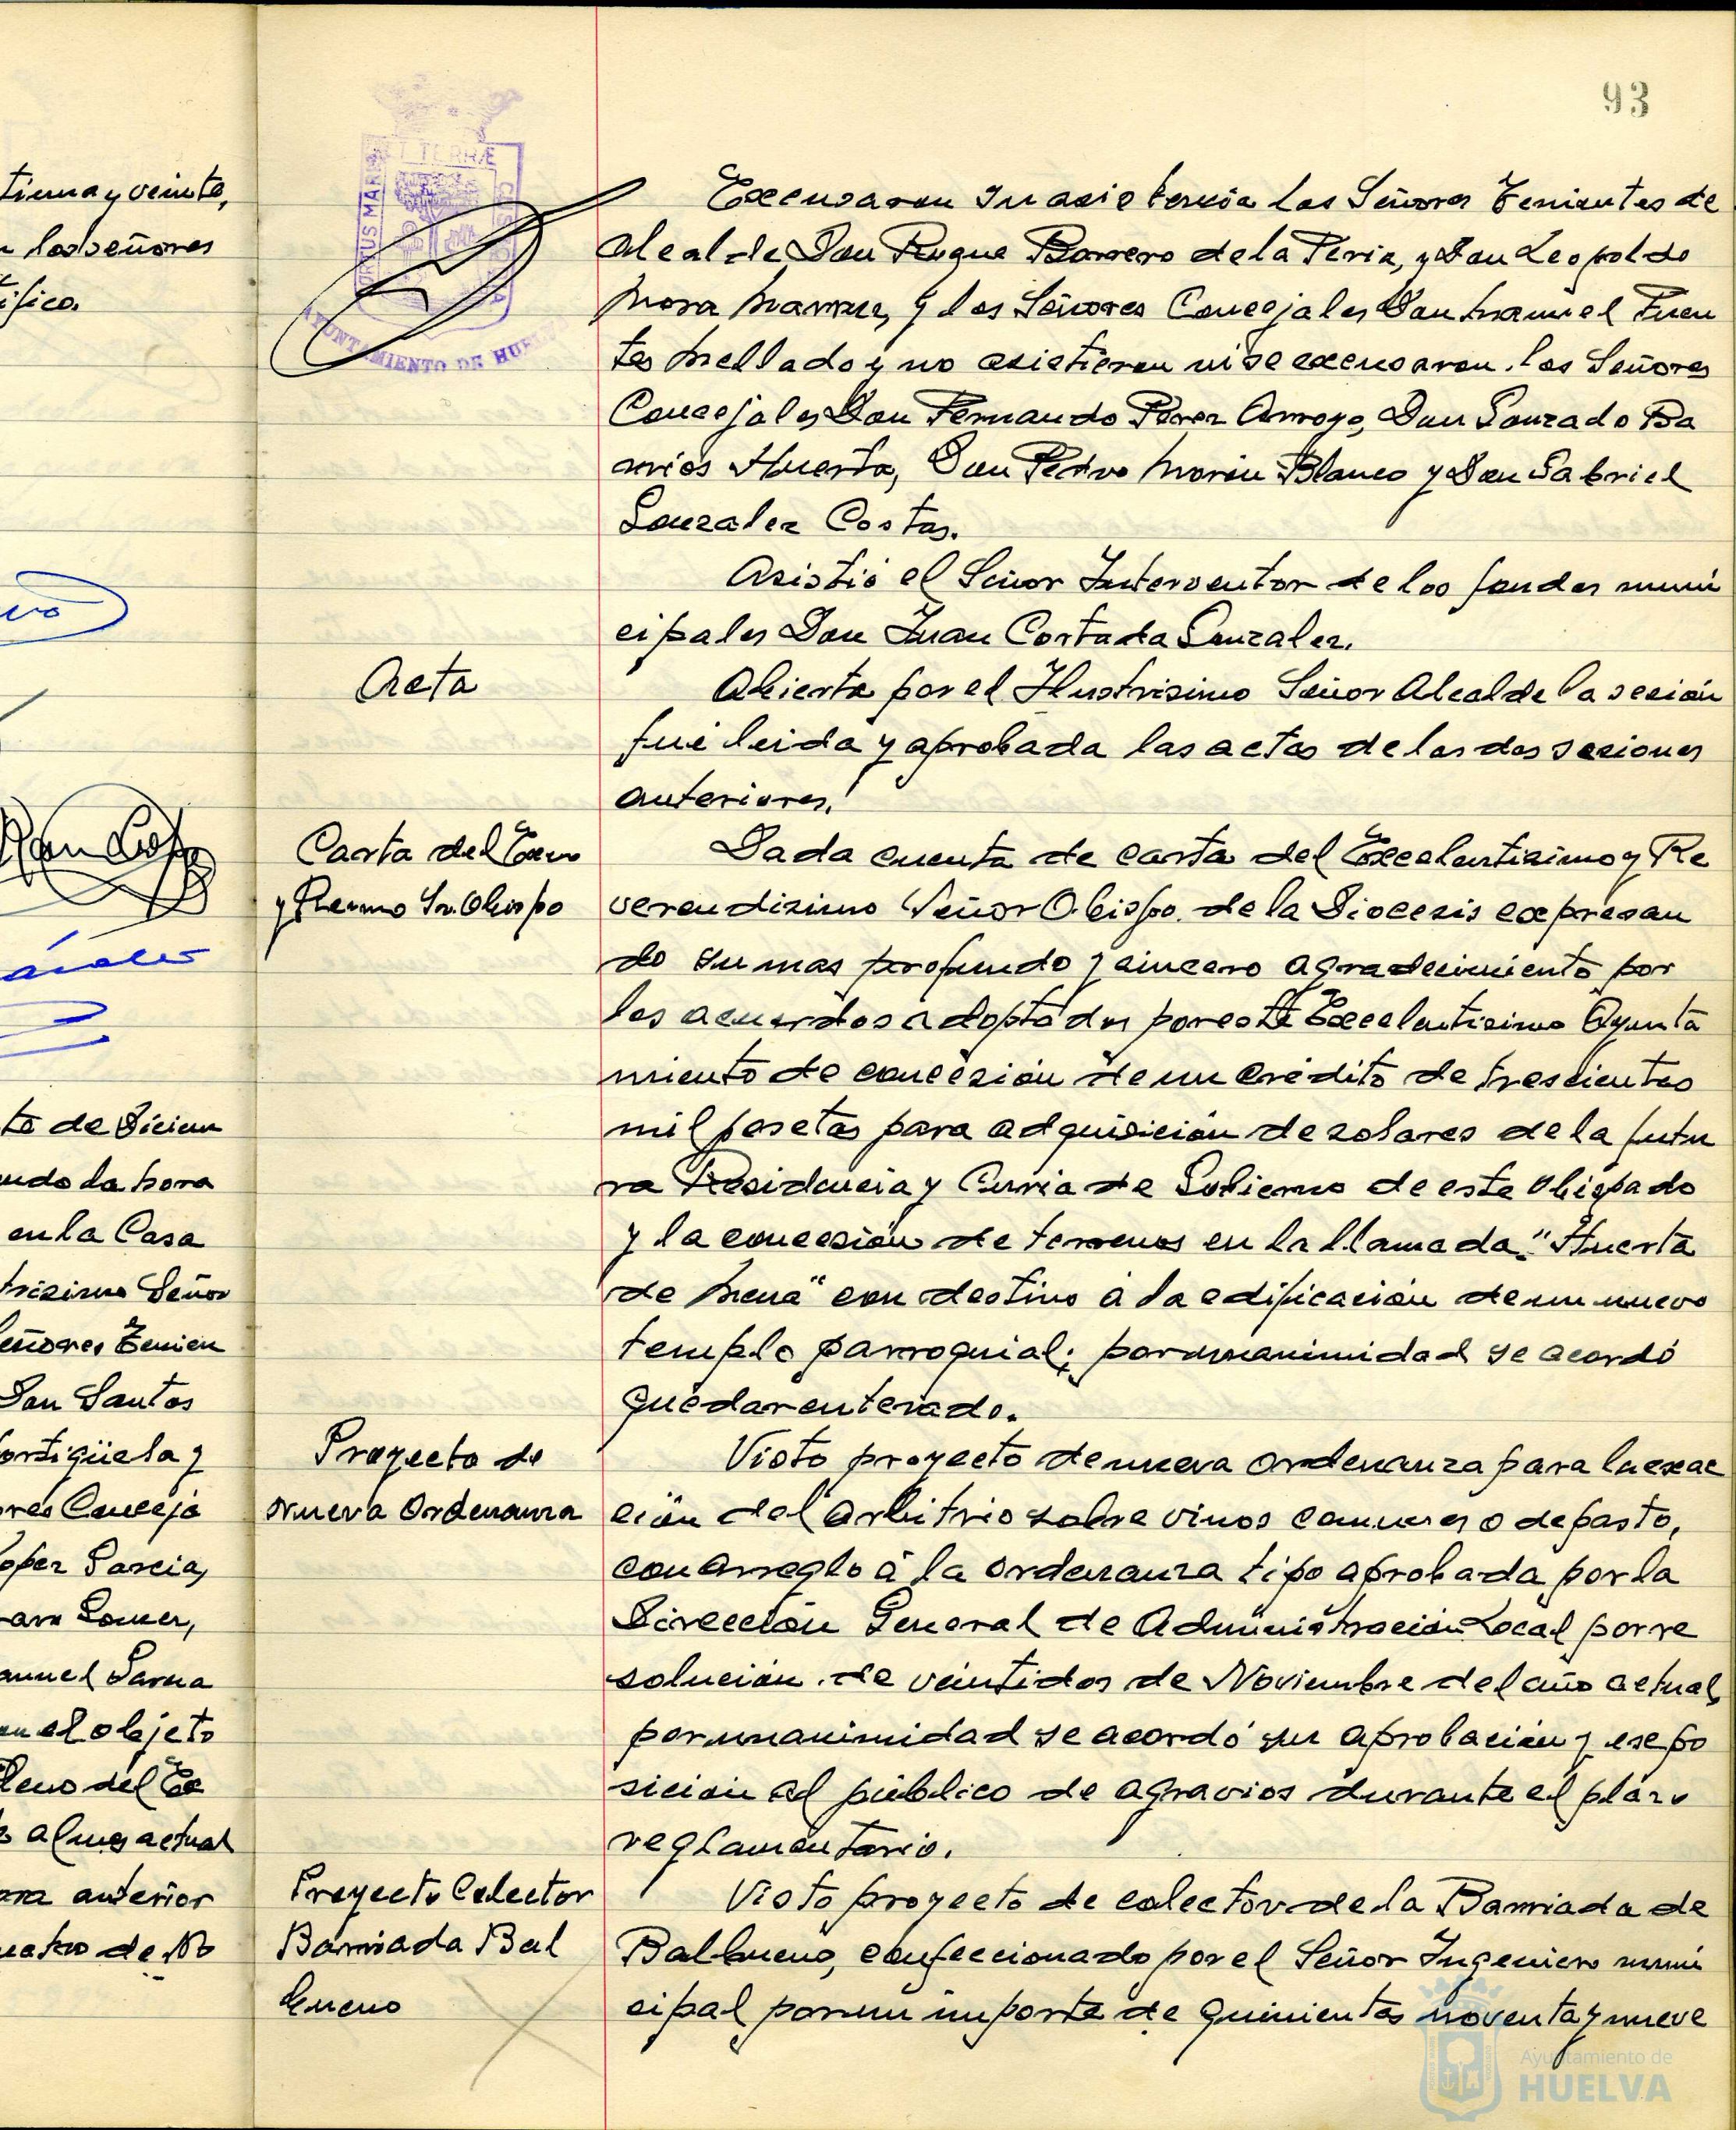 93
tiuna y veinte,
los señores
ifico.
to de Diciem
endo la hora
en la Casa
trisimo Señor
eñores Tenien
Don Santos
ortigüela y
res Conceja
oper Garcia,
ara Gomez,
anuel Garcia
en el objeto
leno del Ex
al mes actual
ora anterior
uatro de No
PORTUS MARIS ET TERRÆ CUSTODIA
AYUNTAMIENTO DE HUELVA
Excusaron su asistencia los Señores Tenientes de
Alcalde Don Roque Barrero de la Peria, y Don Leopoldo
Mora y los Señores Concejales Don Manuel Fuen
tes Mellado y no asistieron ni se excusaron los Señores
Concejales Don Fernando Pérez Arroyo, Don Gonzalo Ba
rrios Huerta, Don Pedro Morón Blanco y Don Gabriel
Gonzalez Costas.
Asistió el Señor Interventor de los fondos muni
cipales Don Juan Cortada Gonzalez.
Acta
Abierta por el Ilustrisimo Señor Alcalde la sesión
fué leida y aprobada las actas de las dos sesiones
anteriores.
Carta del Excmo
y Rvermo Sr. Obispo
Dada cuenta de carta del Excelentisimo y Re
verendisimo Señor Obispo de la Diocesis expresan
do su mas profundo y sincero agradecimiento por
los acuerdos adoptados por este Excelentisimo Ayunta
miento de concesión de un crédito de trescientas
mil pesetas para adquisición de solares de la futu
ra Residencia y Curia de Gobierno de este Obispado
y la concesión de terrenos en la llamada "Huerta
de Mena" con destino a la edificación de un nuevo
templo parroquial; por unanimidad se acordó
quedar enterado.
Proyecto de
nueva Ordenanza
Visto proyecto de nueva ordenanza para la exac
ción del arbitrio sobre vinos comunes o de pasto,
con arreglo a la ordenanza tipo aprobada por la
Dirección General de Administración Local por re
solución de veintidos de Noviembre del año actual,
por unanimidad se acordó su aprobación y expo
sición al público de agravios durante el plazo
reglamentario.
Proyecto Colector
Barriada Bal
bueno
Visto proyecto de colector de la Barriada de
Balbueno, confeccionado por el Señor Ingeniero muni
cipal por un importe de quinientas noventa y nueve
Ayuntamiento de
HUELVA